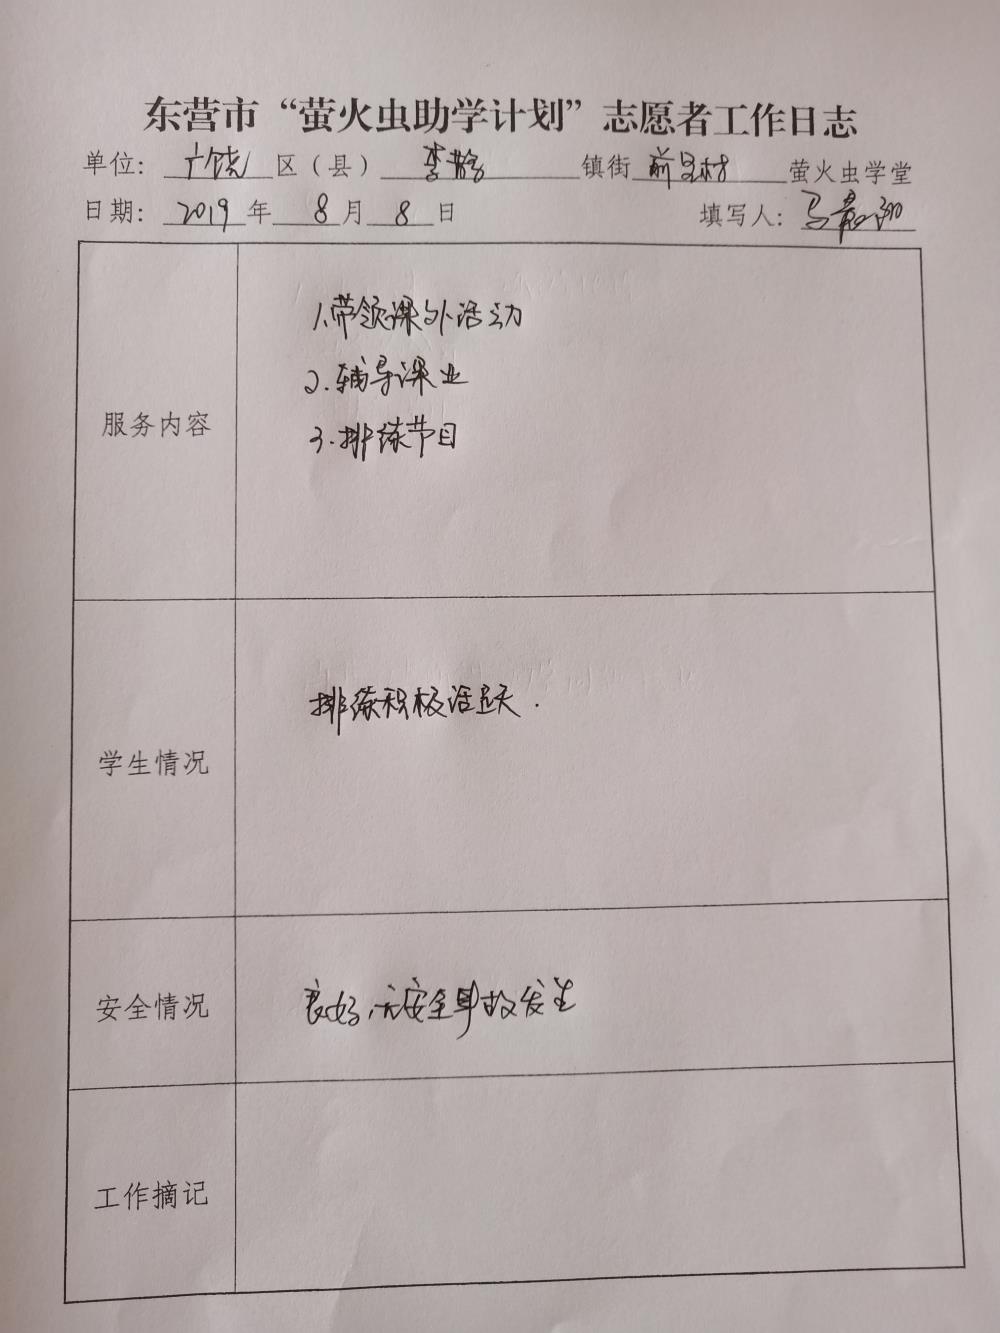 东营市“萤火虫助学计划”志愿者工作日志
单位：广饶区（县）李鹊镇街前呈村萤火虫学堂
日期：2019年8月8日 填写人：马
服务内容
1.带领课外活动
2.辅导课业
3.排练节目
学生情况
排练积极活跃.
安全情况
良好,无安全事故发生
工作摘记